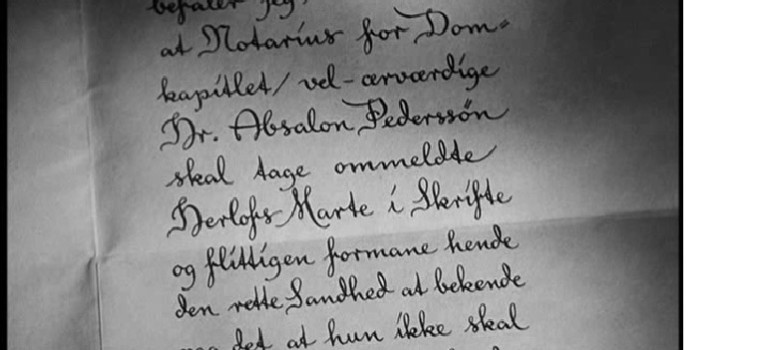 befaler jeg,
at Notarius for Dom-
kapitlet/ vel-ærværdige
Dr. Absalon Pederssön
skal tage ommeldte
Herlofs Marte i Skrifte
og flittigen formane hende
den rette Sandhed at bekende
det at hun ikke skal